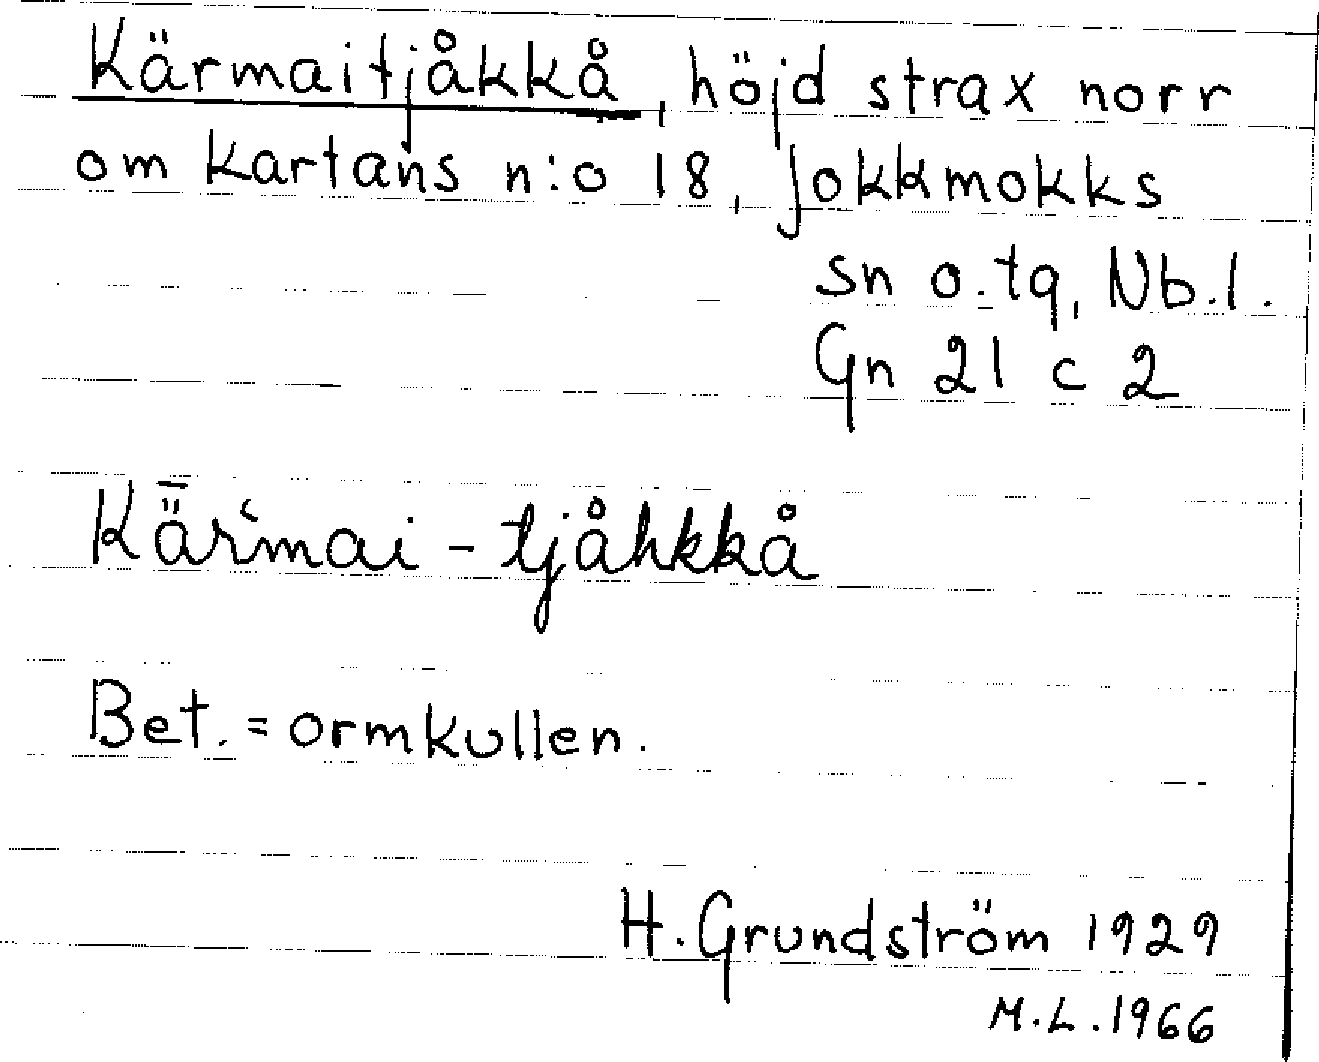 Kärmaitjåkkå, höjd strax norr
om kartans n:o 18, Jokkmokks
sn o. tg, Nb.l.
Gn 21 c 2
Kǟrʿmai - tjåhkkå
Bet. = ormkullen.
H. Grundström 1929
M.L. 1966